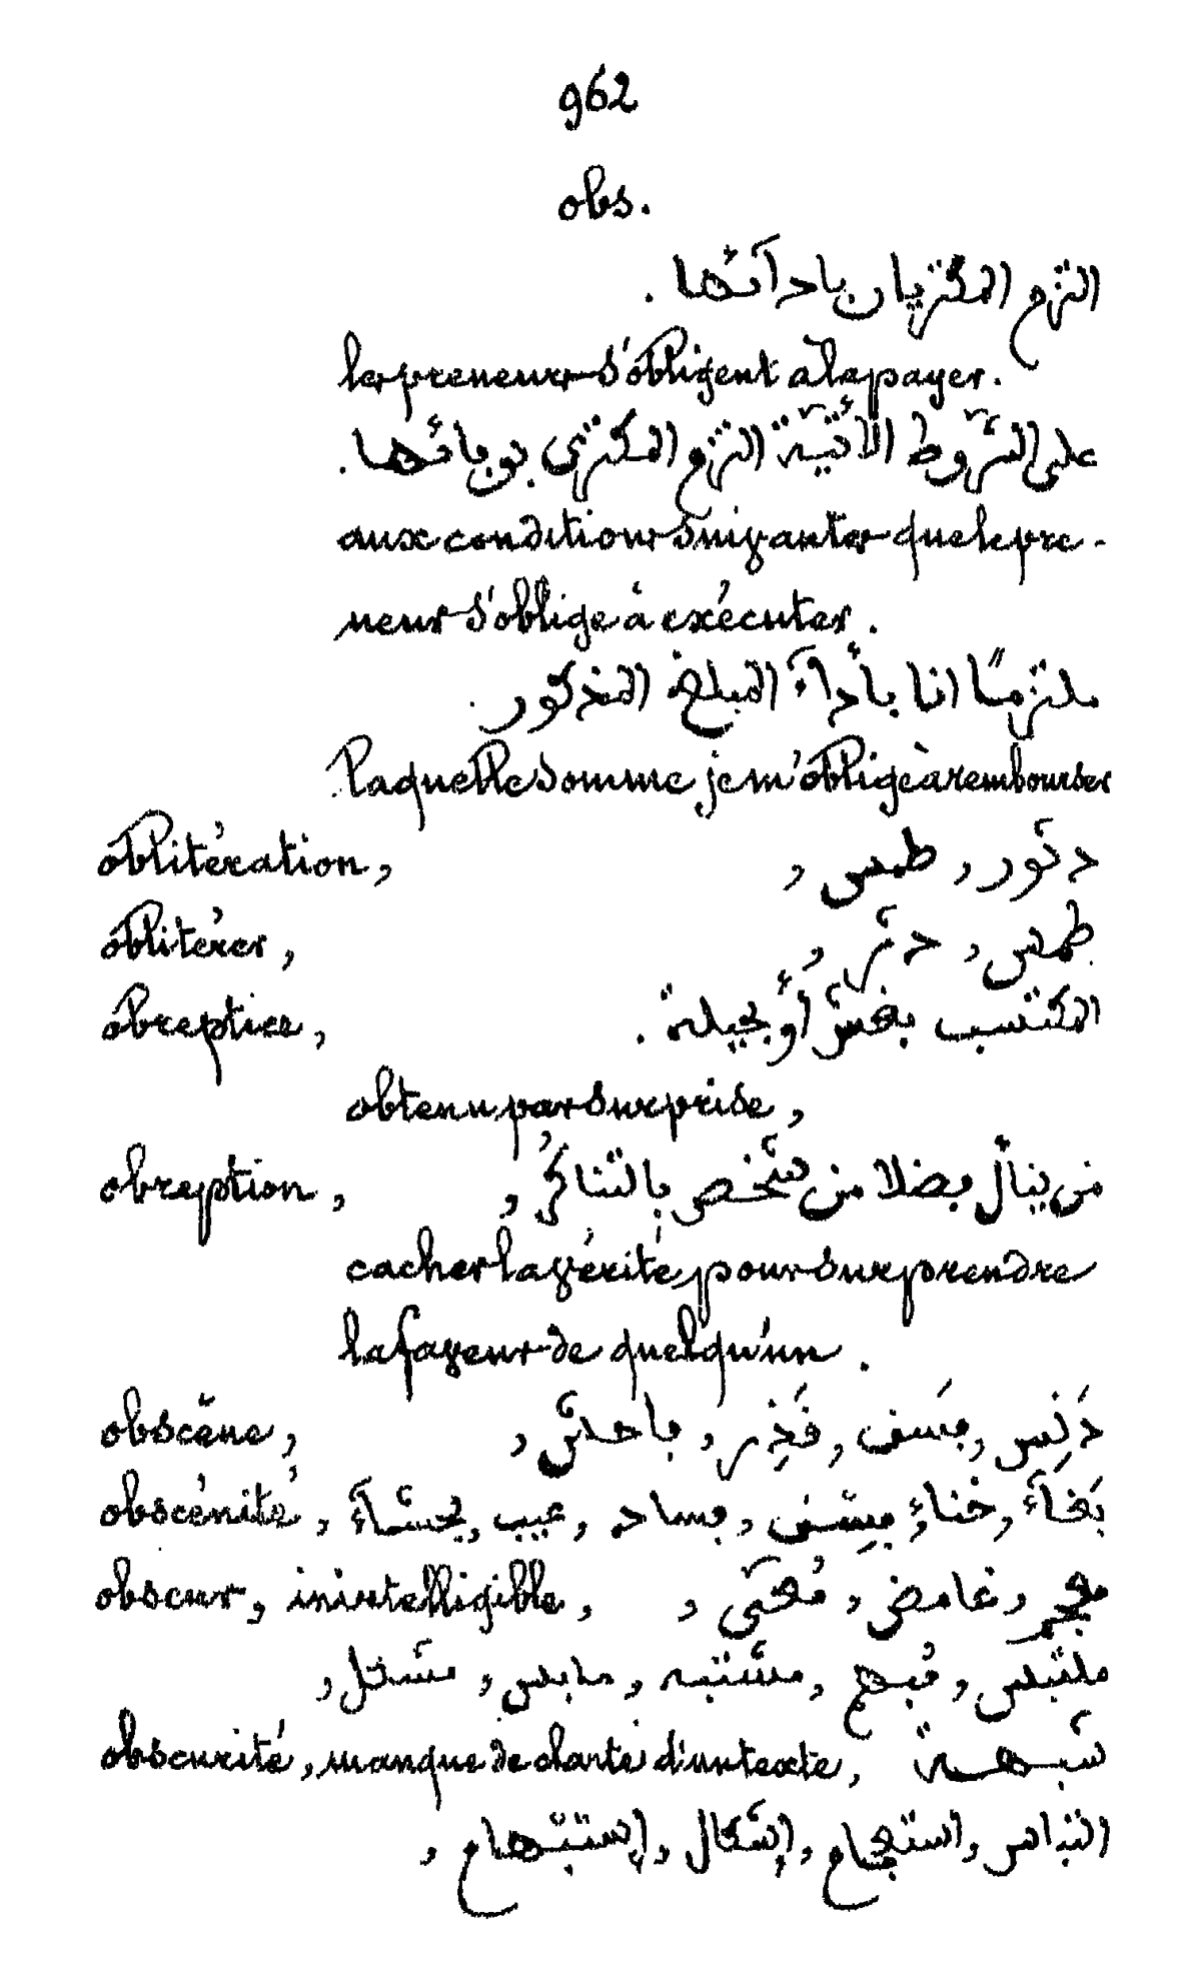 962
obs.
التزم المكتريان بادآئها .
les preneurs s'obligent à la payer.
على الشروط الأتية التزم المكترى بوفائها .
aux conditions suivantes que le pre-
neur s'oblige à exécuter.
ملتزمًا انا بأدآء المبلغ المذكور .
laquelle somme je m'oblige à rembourser
oblitération, دثور، طمس،
oblitérer, طمس، دثر،
obreptice, المكتسب بغش أو بحيلة .
obtenu par surprise,
obreption, من ينال فضلا من شخص بالتناكُر،
cacher la vérité pour surprendre
la faveur de quelqu'un.
obscène, دَنِس، فسَق، قَذِر، فاحش،
obscénité, بَغآء، خناء، فِسق، فساد، عيب، فحشآء،
obscur, inintelligible, معجم، غامض، مُعمّى،
ملتبس، مُبهم، مشتبه، مشكل،
obscurité, manque de clarté d'un texte, شبهة
التباس، استعجام، إشكال، إستبهام،